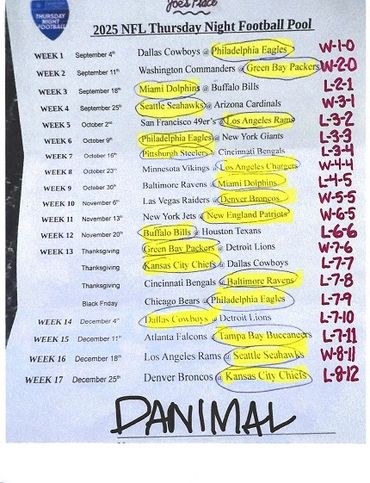 Joe's Place
THURSDAY NIGHT FOOTBALL
2025 NFL Thursday Night Football Pool
WEEK 1 September 4th Dallas Cowboys @ Philadelphia Eagles W-1-0
WEEK 2 September 11th Washington Commanders @ Green Bay Packers W-2-0
WEEK 3 September 18th Miami Dolphins @ Buffalo Bills L-2-1
WEEK 4 September 25th Seattle Seahawks @ Arizona Cardinals W-3-1
WEEK 5 October 2nd San Francisco 49er's @ Los Angeles Rams L-3-2
WEEK 6 October 9th Philadelphia Eagles @ New York Giants L-3-3
WEEK 7 October 16th Pittsburg Steelers @ Cincinnati Bengals L-3-4
WEEK 8 October 23rd Minnesota Vikings @ Los Angeles Chargers W-4-4
WEEK 9 October 30th Baltimore Ravens @ Miami Dolphins L-4-5
WEEK 10 November 6th Las Vegas Raiders @ Denver Broncos W-5-5
WEEK 11 November 13th New York Jets @ New England Patriots W-6-5
WEEK 12 November 20th Buffalo Bills @ Houston Texans L-6-6
WEEK 13 Thanksgiving Green Bay Packers @ Detroit Lions W-7-6
Thanksgiving Kansas City Chiefs @ Dallas Cowboys L-7-7
Thanksgiving Cincinnati Bengals @ Baltimore Ravens L-7-8
Black Friday Chicago Bears @ Philadelphia Eagles L-7-9
WEEK 14 December 4th Dallas Cowboys @ Detroit Lions L-7-10
WEEK 15 December 11th Atlanta Falcons @ Tampa Bay Buccaneers L-7-11
WEEK 16 December 18th Los Angeles Rams @ Seattle Seahawks W-8-11
WEEK 17 December 25th Denver Broncos @ Kansas City Chiefs L-8-12
DANIMAL